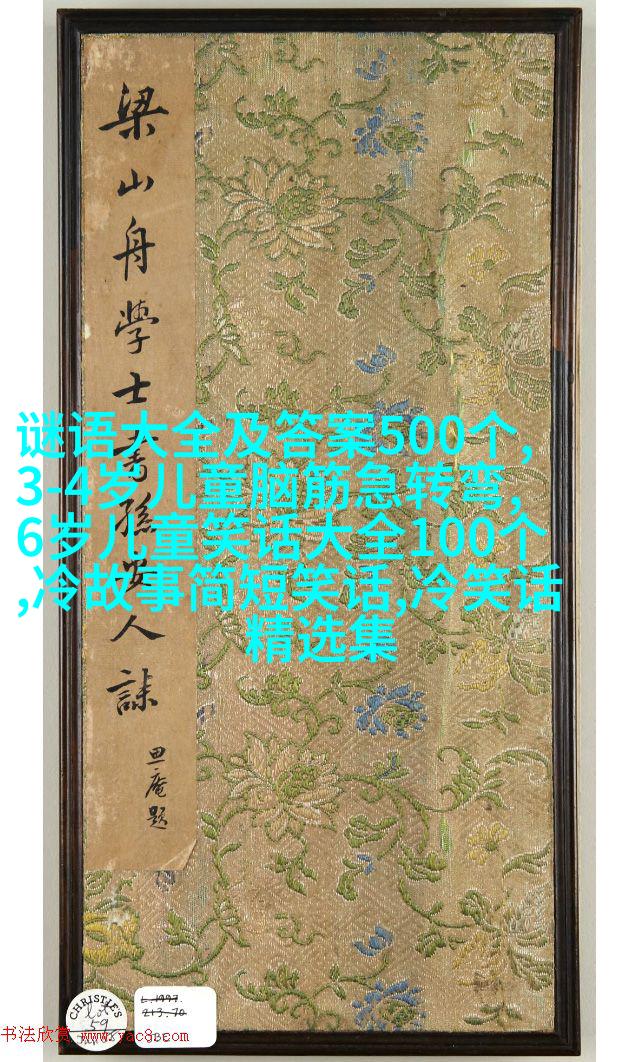 梁山舟學士書孫安人誄
思庵題
谜语大全及答案500个,
3-4岁儿童脑筋急转弯,
6岁儿童笑话大全100个
,冷故事简短笑话,冷笑话
精选集
CHRISTIE'S
Lot
59
L.1997.
213.70
书法欣赏 www.yac8.com